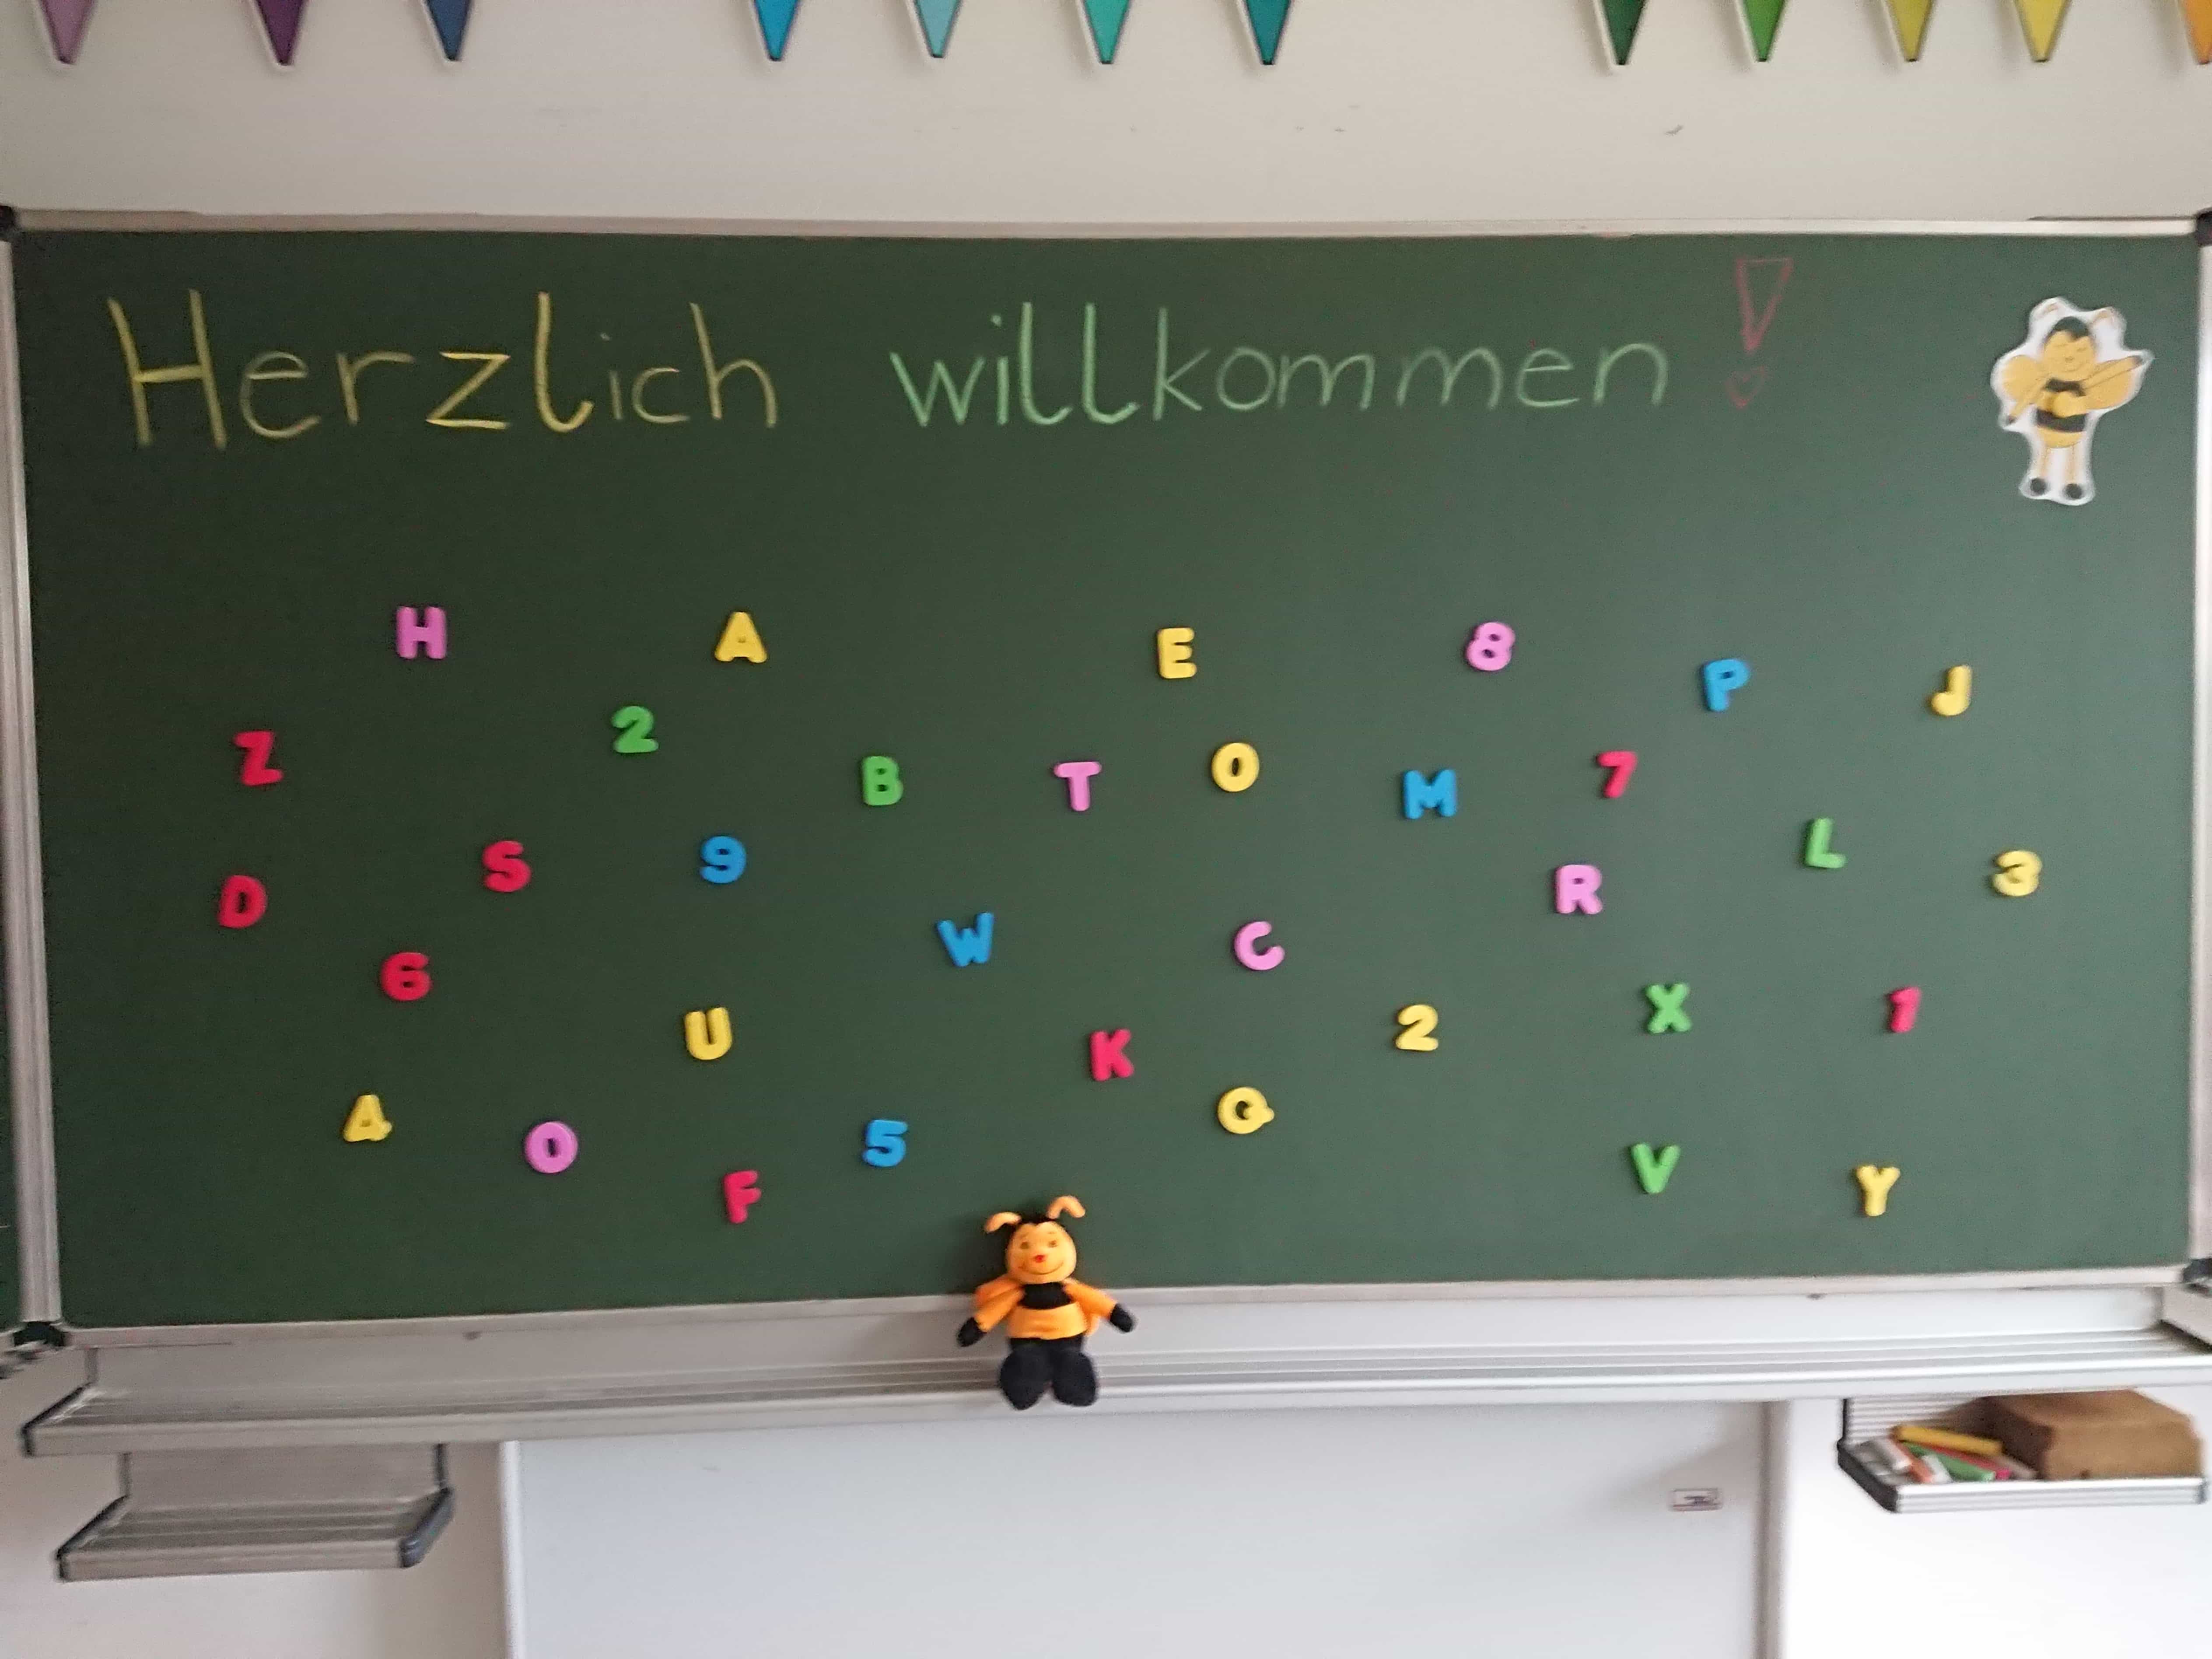 Herzlich willkommen!
H A E 8 P J
Z 2 B T O M 7
D S 9 R L 3
6 W C
U K 2 X 1
A O F 5 Q V Y